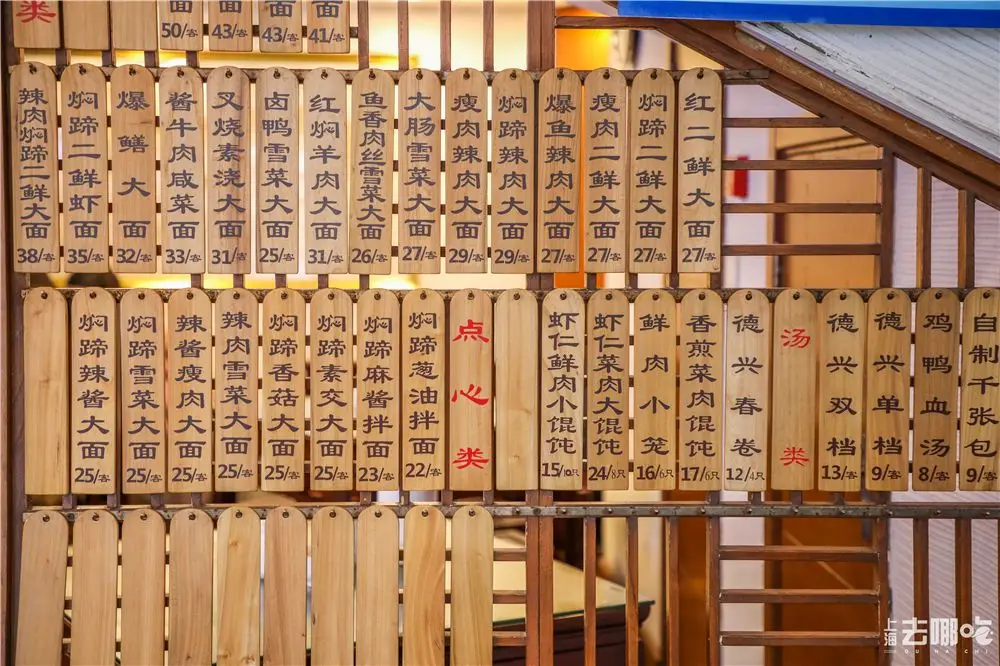 类
面 50/客
面 43/客
面 43/客
面 41/客
辣肉焖蹄二鲜大面 38/客
焖蹄二鲜虾面 35/客
爆鳝大面 32/客
酱牛肉咸菜面 33/客
叉烧素浇大面 31/客
卤鸭雪菜大面 25/客
红焖羊肉大面 31/客
鱼香肉丝雪菜大面 26/客
大肠雪菜大面 27/客
瘦肉辣肉大面 29/客
焖蹄辣肉大面 29/客
爆鱼辣肉大面 27/客
瘦肉二鲜大面 27/客
焖蹄二鲜大面 27/客
红二鲜大面 27/客
焖蹄辣酱大面 25/客
焖蹄雪菜大面 25/客
辣酱瘦肉大面 25/客
辣肉雪菜大面 25/客
焖蹄香菇大面 25/客
焖蹄素交大面 25/客
焖蹄麻酱拌面 23/客
焖蹄葱油拌面 22/客
点心类
虾仁鲜肉小馄饨 15/10只
虾仁菜肉大馄饨 24/8只
鲜肉小笼 16/6只
香煎菜肉馄饨 17/6只
德兴春卷 12/4只
汤类
德兴双档 13/客
德兴单档 9/客
鸡鸭血汤 8/客
自制千张包 9/客
上海去哪吃
QU NA CHI